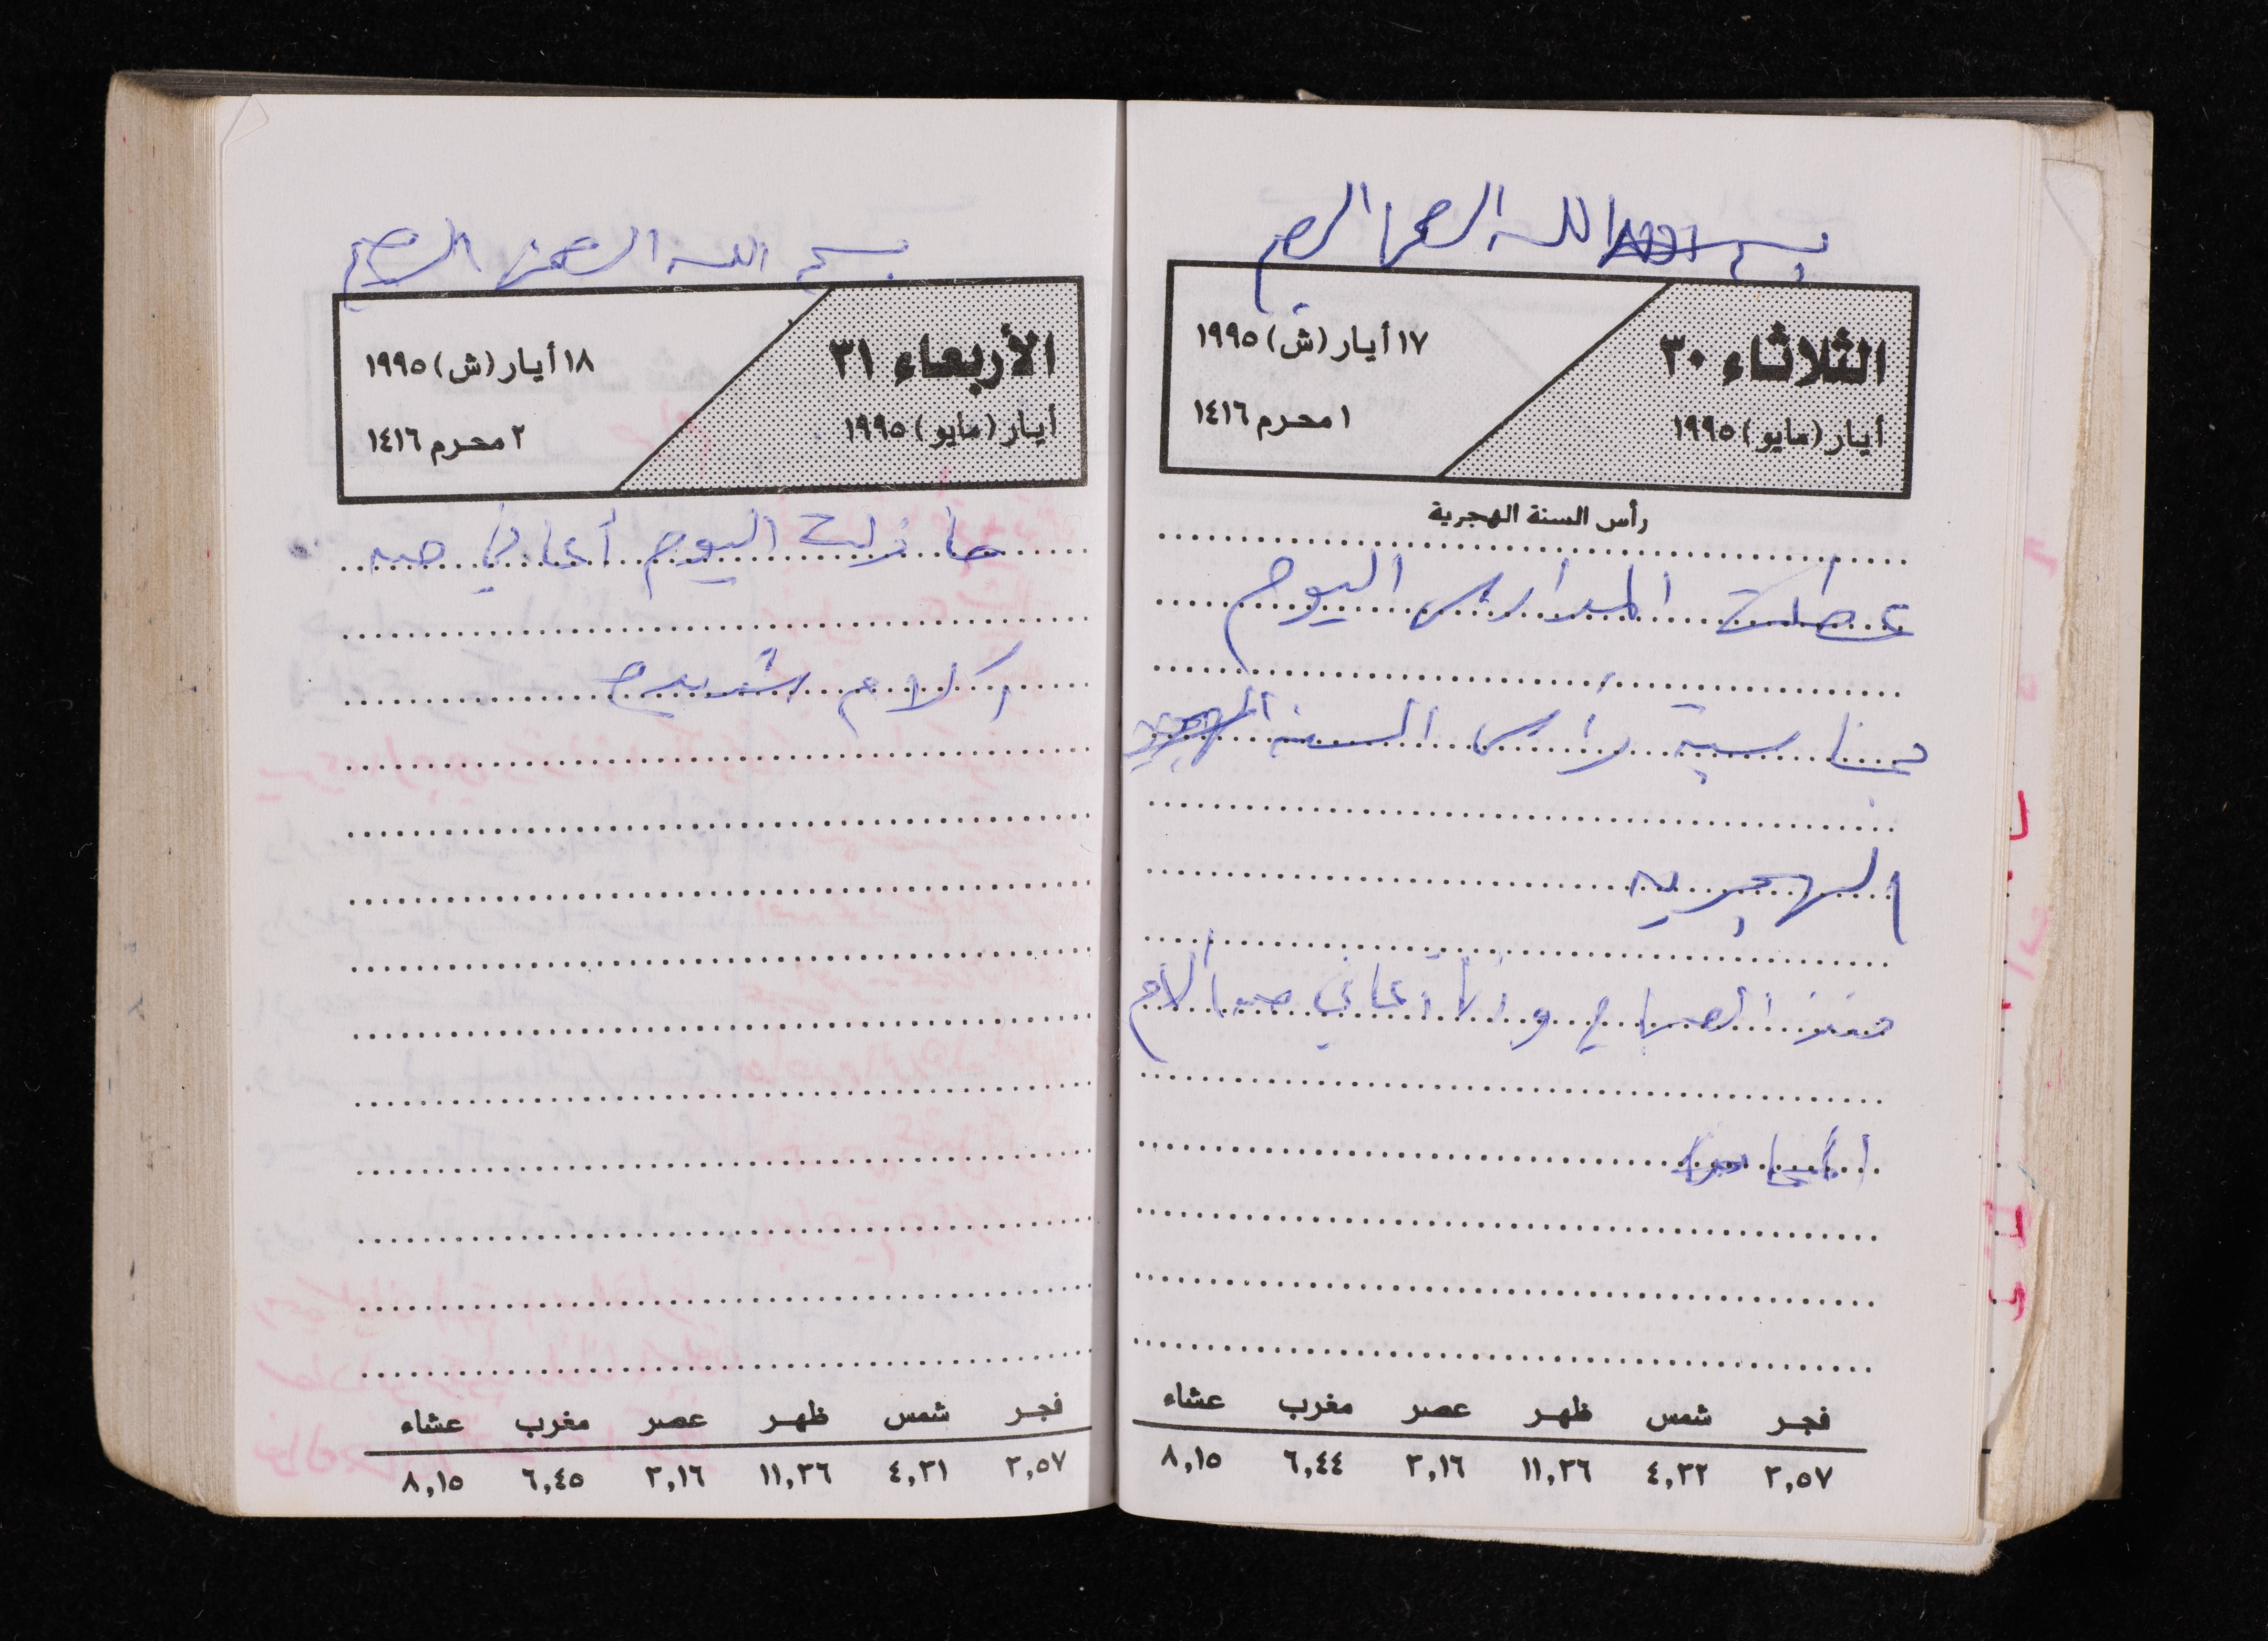 بسم الله الرحمن الرحيم
الثلاثاء ٣٠
أيار (مايو) ١٩٩٥
١٧ أيار (ش) ١٩٩٥
١ محرم ١٤١٦
رأس السنة الهجرية
عطلت المدارس اليوم
بمناسبة رأس السنة
الهجريه
منذ الصباح وأنا أعاني من آلام
فجر شمس ظهر عصر مغرب عشاء
٢,٥٧ ٤,٣٢ ١١,٣٦ ٣,١٦ ٦,٤٤ ٨,١٥
بسم الله الرحمن الرحيم
الأربعاء ٣١
أيار (مايو) ١٩٩٥
١٨ أيار (ش) ١٩٩٥
٢ محرم ١٤١٦
ما زلت اليوم أعاني من
الام شديدة
فجر شمس ظهر عصر مغرب عشاء
٢,٥٧ ٤,٣١ ١١,٣٦ ٣,١٦ ٦,٤٥ ٨,١٥